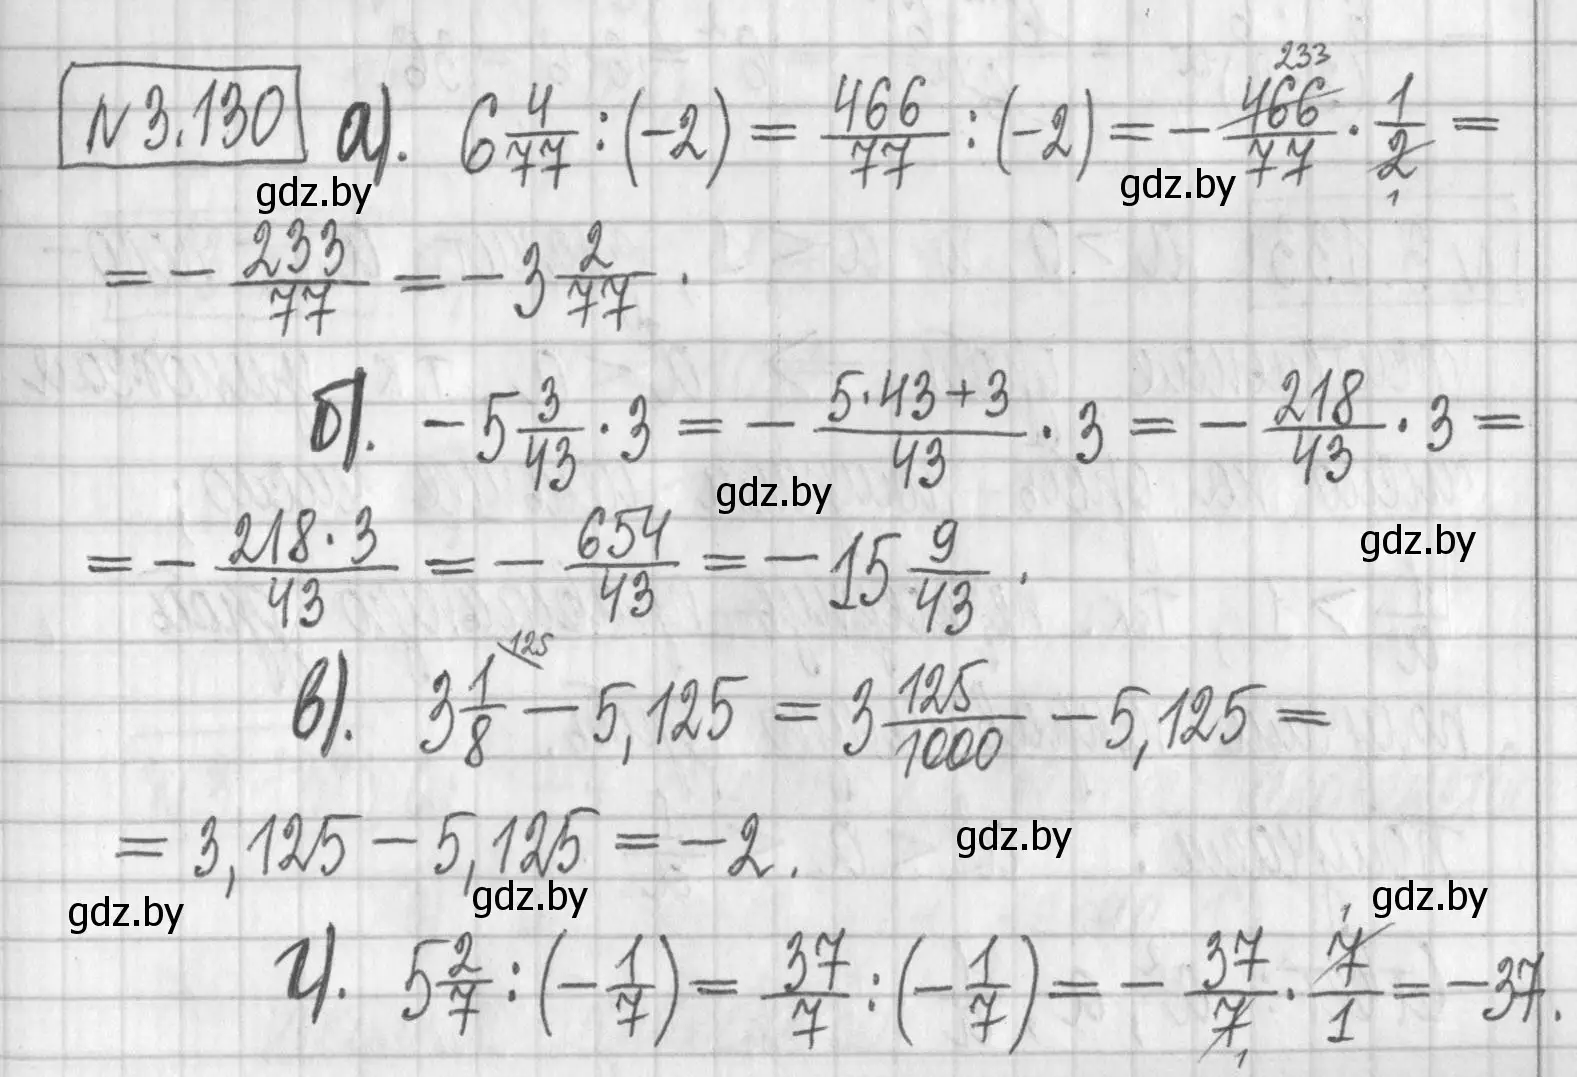 N3.130 а). 6 4/77 : (-2) = 466/77 : (-2) = - 466/77 · 1/2 = 233 1
gdz.by gdz.by
= - 233/77 = - 3 2/77 .
б). - 5 3/43 · 3 = - 5·43+3/43 · 3 = - 218/43 · 3 =
gdz.by gdz.by
= - 218·3/43 = - 654/43 = - 15 9/43 .
в). 3 1/8 125 - 5,125 = 3 125/1000 - 5,125 =
= 3,125 - 5,125 = - 2 .
gdz.by
gdz.by gdz.by gdz.by
г). 5 2/7 : (- 1/7) = 37/7 : (- 1/7) = - 37/7 · 7/1 = - 37 . 1 1